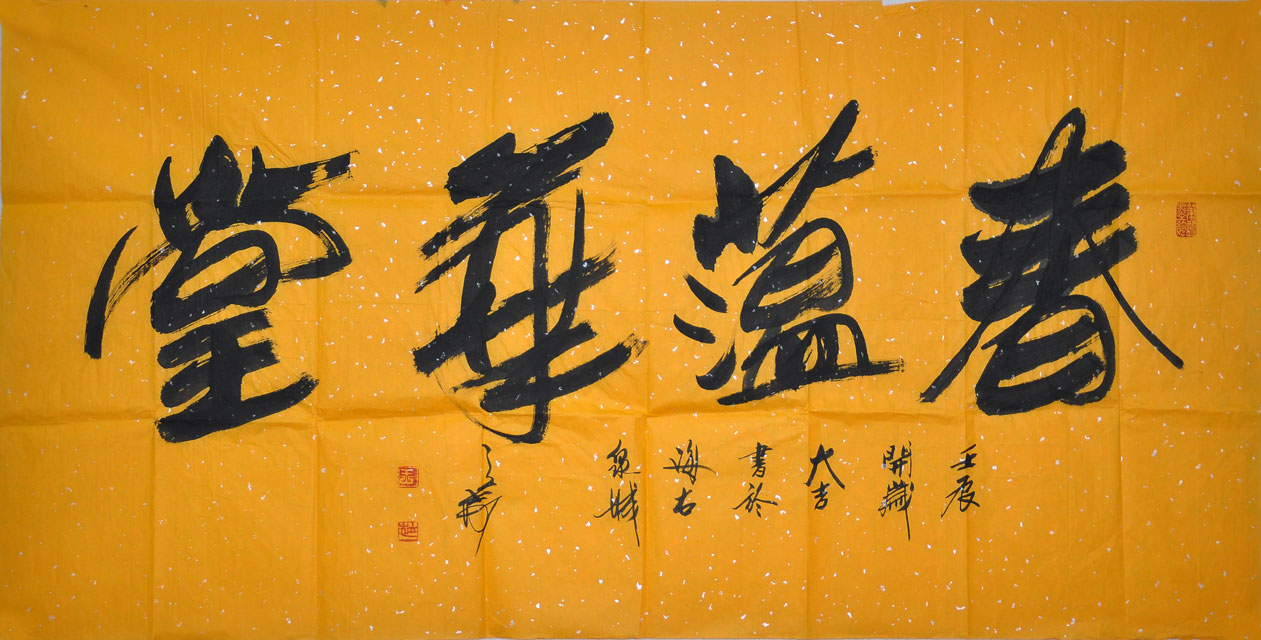 春蕰華堂
壬辰
開歲
大吉
書於
海右
泉城